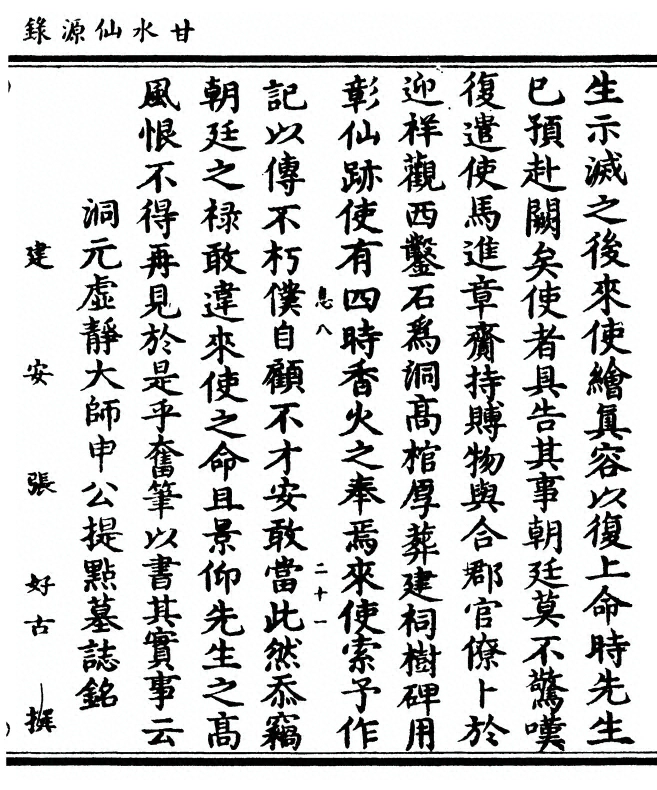 甘水仙源錄
生示滅之後來使繪眞容以復上命時先生
已預赴闕矣使者具告其事朝廷莫不驚嘆
復遣使馬進章齎持賻物與合郡官僚卜於
迎祥觀西鑿石爲洞高棺厚葬建祠樹碑用
彰仙跡使有四時香火之奉焉來使索予作
息八
二十一
記以傳不朽僕自顧不才安敢當此然忝竊
朝廷之禄敢違來使之命且景仰先生之高
風恨不得再見於是乎奮筆以書其實事云
洞元虛靜大師申公提點墓誌銘
建安張好古撰